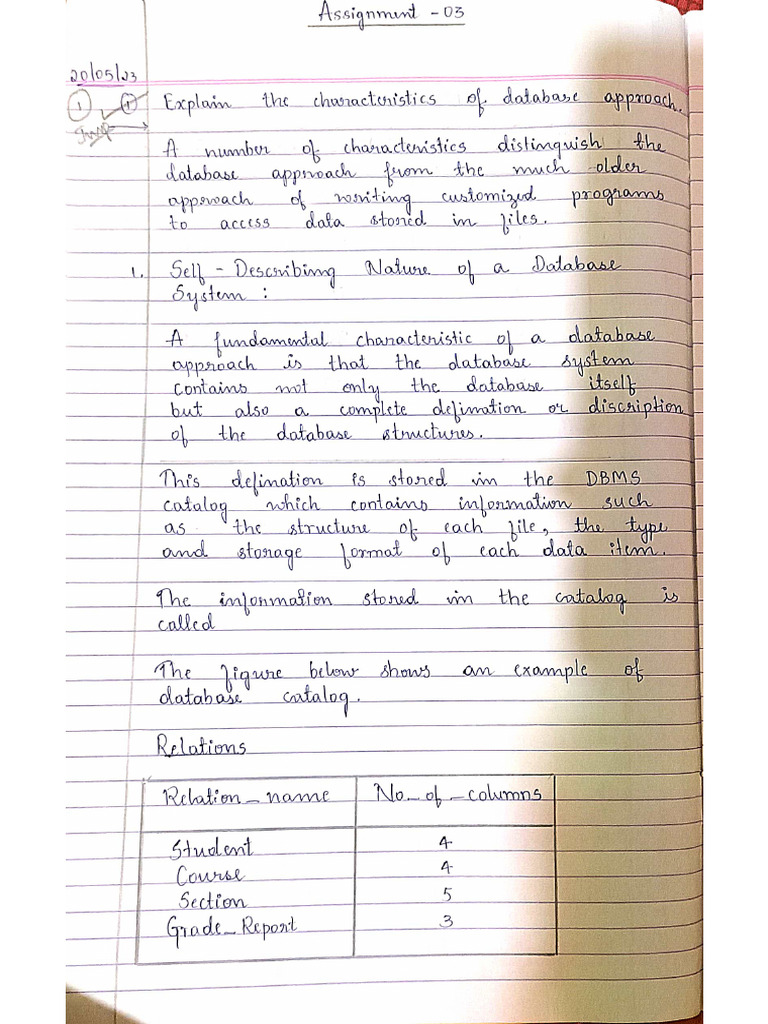 Assignment - 03
20/05/23
1 1 Explain the characteristics of database approach.
Imp
A number of characteristics distinguish the
database approach from the much older
approach of writing customized programs
to access data stored in files.
1. Self - Describing Nature of a Database
System :
A fundamental characteristic of a database
approach is that the database system
contains not only the database itself
but also a complete defination or discription
of the database structures.
This defination is stored in the DBMS
catalog which contains information such
as the structure of each file, the type
and storage format of each data item.
The information stored in the catalog is
called
The figure below shows an example of
database catalog.
Relations
Relation_name No_of_columns
Student 4
Course 4
Section 5
Grade_Report 3